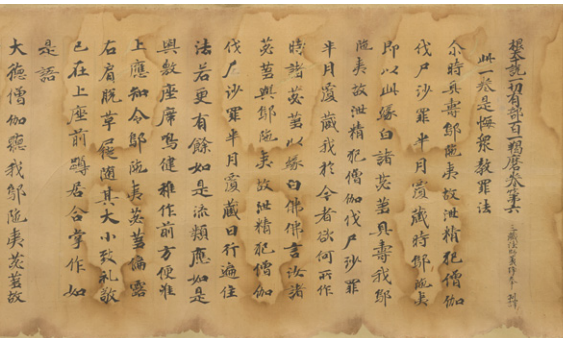 根本說一切有部百一羯磨卷第六
三藏法師義淨奉
此一卷是悔眾教罪法
尒時具壽鄔陁夷故泄精犯僧伽
伐尸沙罪半月覆藏時鄔陁夷
即以此緣白諸苾芻具壽我鄔
陁夷故泄精犯僧伽伐尸沙罪
半月覆藏我於今者欲何所作
時諸苾芻以緣白佛佛言汝諸
苾芻與鄔陁夷故泄精犯僧伽
伐尸沙罪半月覆藏日行遍住
法若更有餘如是流類應如是
與敷座席鳴健椎作前方便准
上應知令鄔陁夷苾芻偏露
右肩脫革屣隨其大小致礼敬
已在上座前蹲居合掌作如
是語
大德僧伽聽我鄔陁夷苾芻故